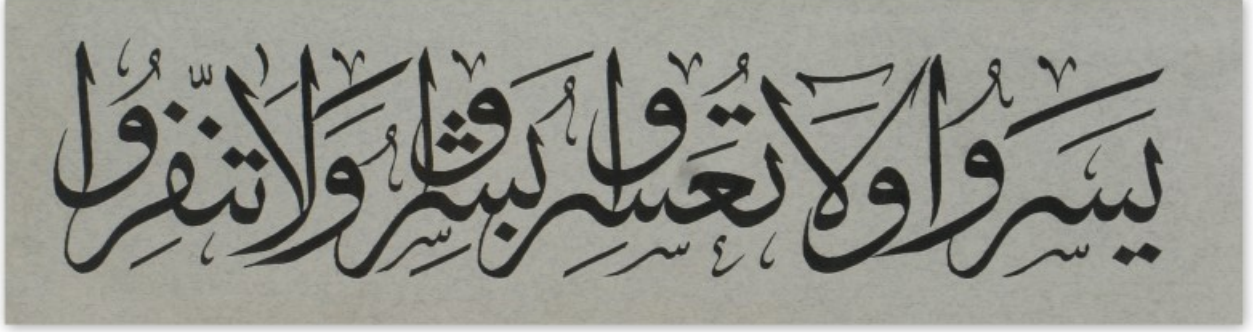 يَسِّرُوا وَلَا تُعَسِّرُوا بَشِّرُوا وَلَا تُنَفِّرُوا